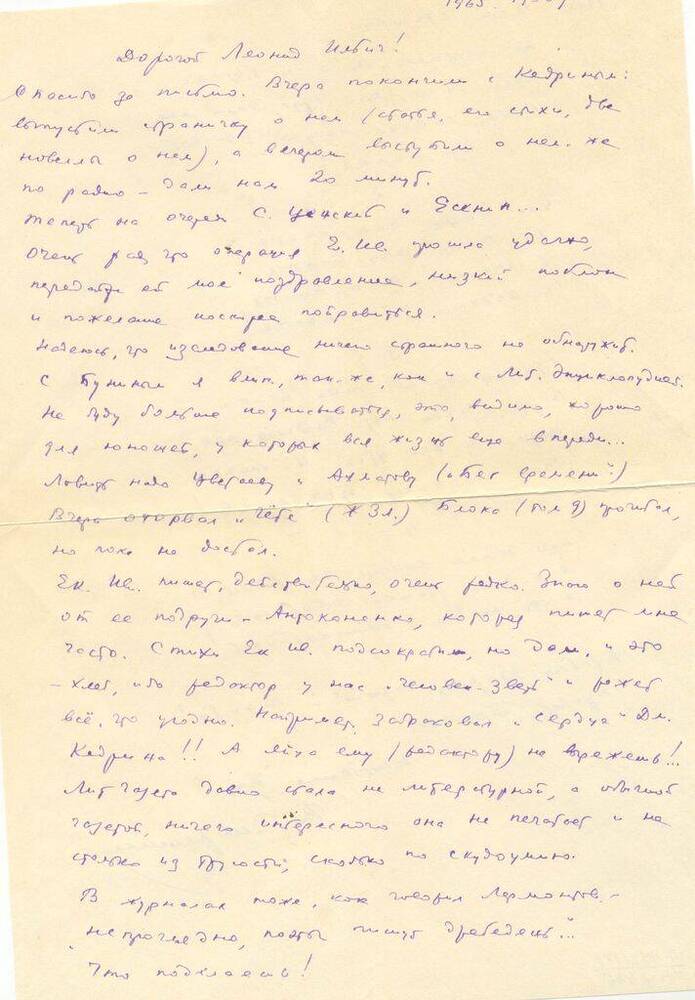 1965
Дорогой Леонид Ильич!
Спасибо за письмо. Вчера покончили с Кедриным:
выпустили страничку о нем (статья, его стихи, две
новеллы о нем), а вечером выступили о нем же
по радио – дали нам 20 минут.
Теперь на очереди С. Ценский и Есенин...
Очень рад, что операция Е. Ив. прошла удачно,
передайте ей мое поздравление, низкий поклон
и пожелание поскорее поправиться.
Надеюсь, что исследование ничего страшного не обнаружит.
С Буниным я влип, так-же, как и с Лит. Энциклопедией.
Не буду больше подписываться, это, видимо, хорошо
для юношей, у которых вся жизнь еще впереди...
Ловить надо Цветаеву и Ахматову („Бег времени“.)
Вчера оторвал „Гёте“ (ЖЗЛ.) Блока (том 9) прочитал,
но пока не достал.
Ек. Ив. пишет, действительно, очень редко. Знаю о ней
от ее подруги Антоконенко, которая пишет мне
часто. Стихи Ек Ив. подсократили, но дали, и это
– хлеб, ибо редактор у нас „человек-зверь“ и режет
всё, что угодно. Например, забраковал „Сердце“ Дм.
Кедрина!! А яйца ему (редактору) не вырежешь!..
Лит газета давно стала не литературной, а обычной
газетой, ничего интересного она не печатает и не
столько из трусости, сколько по скудоумию.
В журналах тоже, как говорил Лермонтов –
„не прочь одно, поэты пишут дребедень“...
Что поделаешь!